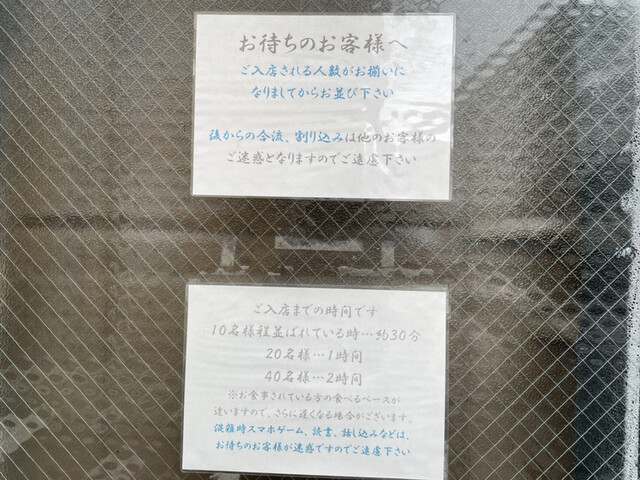 お待ちのお客様へ
ご入店される人数がお揃いに
なりましてからお並び下さい
後からの合流、割り込みは他のお客様の
ご迷惑となりますのでご遠慮下さい
ご入店までの時間です
10名様程並ばれている時…約30分
20名様…1時間
40名様…2時間
※お食事されている方の食べるペースが
違いますので、さらに遅くなる場合がございます。
混雑時スマホゲーム、読書、話し込みなどは、
お待ちのお客様が迷惑ですのでご遠慮下さい